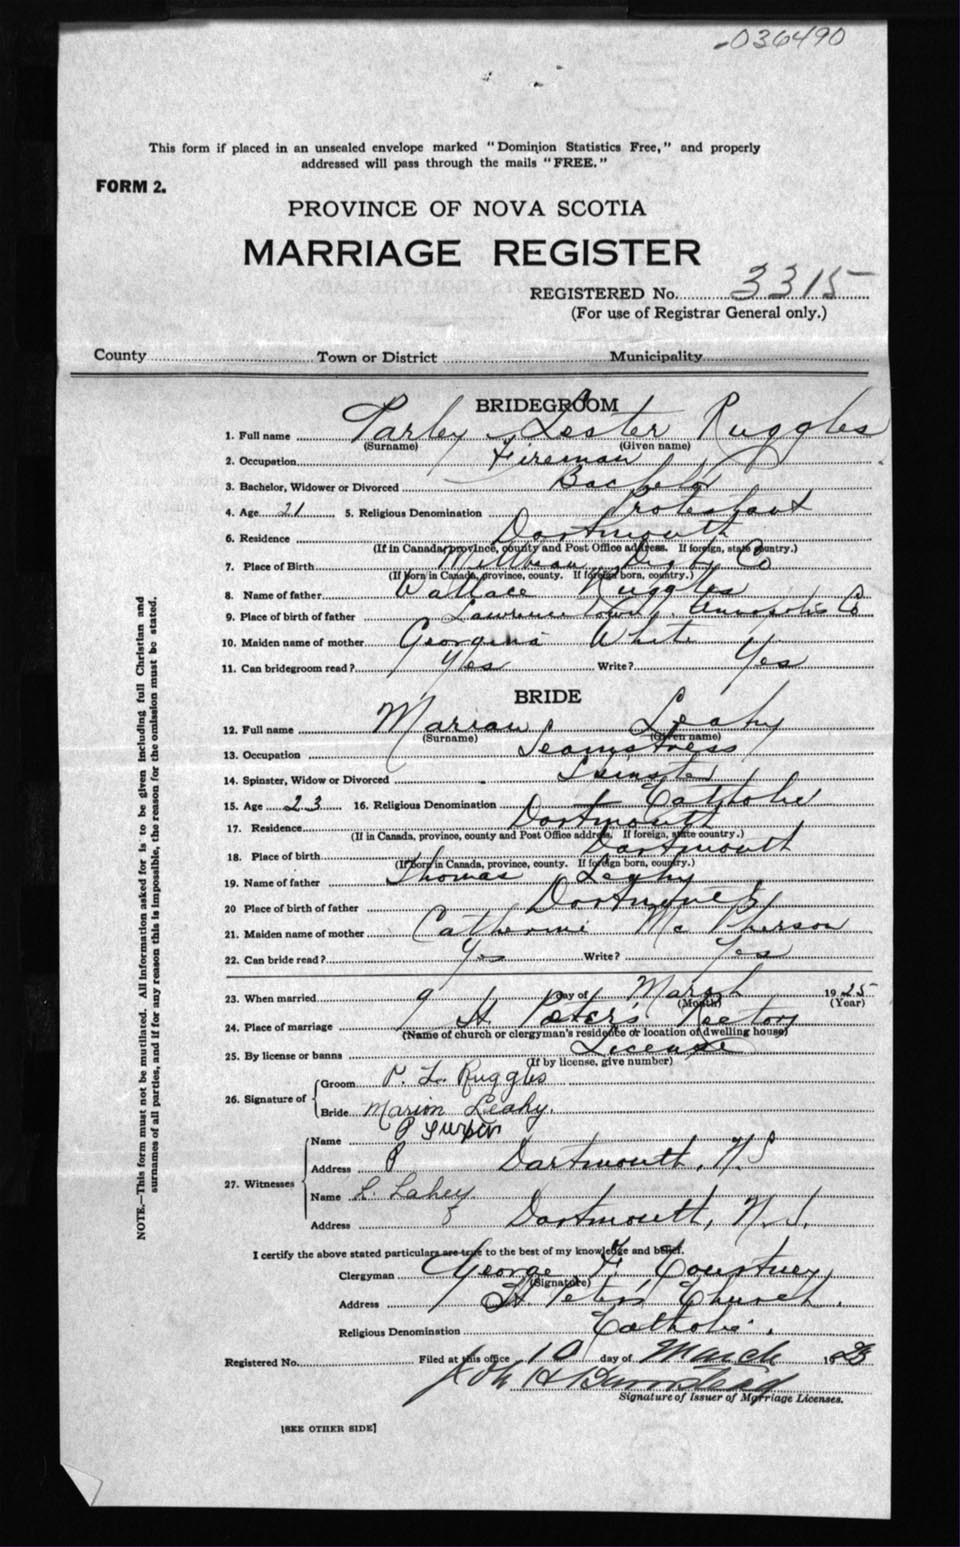 036490
This form if placed in an unsealed envelope marked "Dominion Statistics Free," and properly
addressed will pass through the mails "FREE."
FORM 2.
PROVINCE OF NOVA SCOTIA
MARRIAGE REGISTER
REGISTERED No. 3315
(For use of Registrar General only.)
County Town or District Municipality
BRIDEGROOM
1. Full name Parley Lester Ruggles
(Surname) (Given name)
2. Occupation Fireman
3. Bachelor, Widower or Divorced Bachelor
4. Age 21 5. Religious Denomination Protestant
6. Residence Dartmouth
(If in Canada, province, county and Post Office address. If foreign, state country.)
7. Place of Birth Digby Co
(If born in Canada, province, county. If foreign born, country.)
8. Name of father Wallace Ruggles
9. Place of birth of father Lawrencetown Annapolis Co
10. Maiden name of mother Georgina White
11. Can bridegroom read? Yes Write? Yes
BRIDE
12. Full name Marian Leahy
(Surname) (Given name)
13. Occupation Seamstress
14. Spinster, Widow or Divorced Spinster
15. Age 23 16. Religious Denomination Catholic
17. Residence Dartmouth
(If in Canada, province, county and Post Office address. If foreign, state country.)
18. Place of birth Dartmouth
(If born in Canada, province, county. If foreign born, country.)
19. Name of father Thomas Leahy
20 Place of birth of father Dartmouth
21. Maiden name of mother Catherine McPherson
22. Can bride read? Yes Write? Yes
23. When married 9 Day of March 1925
(Month) (Year)
24. Place of marriage St Peter's Rectory
(Name of church or clergyman's residence or location of dwelling house)
25. By license or banns License
(If by license, give number)
26. Signature of
Groom P. L. Ruggles
Bride Marion Leahy.
27. Witnesses
Name P
Address Dartmouth, N.S
Name L. Lahey
Address Dartmouth, N.S.
I certify the above stated particulars are true to the best of my knowledge and belief.
Clergyman George F. Courtney
(Signature)
Address St Peter's Church.
Religious Denomination Catholic.
Registered No. Filed at this office 10 day of March 19
Signature of Issuer of Marriage Licenses.
[SEE OTHER SIDE]
NOTE.—This form must not be mutilated. All information asked for is to be given including full Christian and
surnames of all parties, and if for any reason this is impossible, the reason for the omission must be stated.